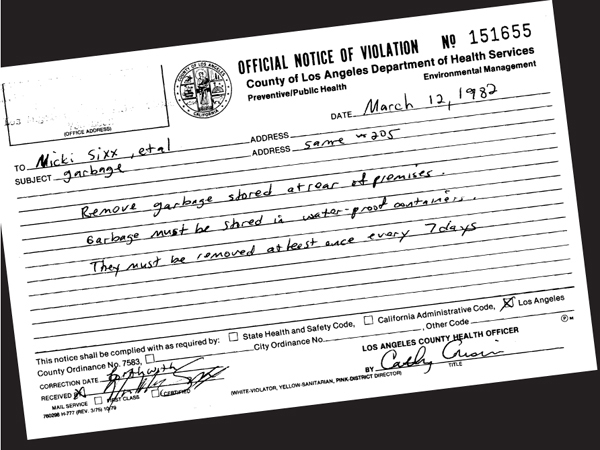 OFFICIAL NOTICE OF VIOLATION № 151655
County of Los Angeles Department of Health Services
Preventive/Public Health Environmental Management
COUNTY OF LOS ANGELES
CALIFORNIA
(OFFICE ADDRESS)
DATE March 12, 1982
TO Nicki Sixx, etal ADDRESS
SUBJECT garbage ADDRESS same #205
Remove garbage stored at rear of premises.
Garbage must be stored in water-proof containers.
They must be removed atleest once every 7days
This notice shall be complied with as required by: ☐ State Health and Safety Code, ☐ California Administrative Code, ☒ Los Angeles
County Ordinance No. 7583, ☐ City Ordinance No. , Other Code
CORRECTION DATE forthwith LOS ANGELES COUNTY HEALTH OFFICER
RECEIVED BY Cathy
MAIL SERVICE ☐ FIRST CLASS ☐ CERTIFIED TITLE
760296 H-777 (REV. 3/75) 10/79 (WHITE-VIOLATOR, YELLOW-SANITARIAN, PINK-DISTRICT DIRECTOR)